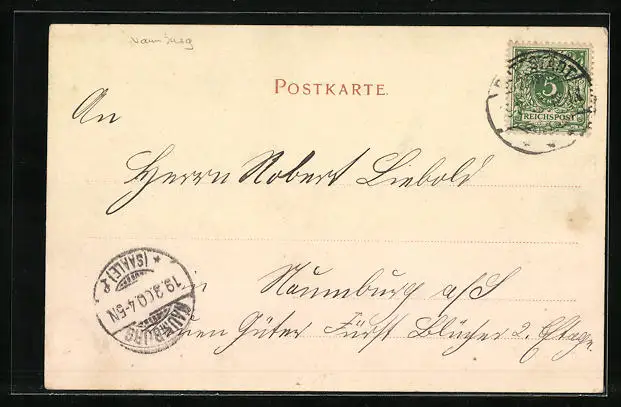 Naumburg
POSTKARTE.
5
REICHSPOST
An
Herrn Robert Liebold
in Naumburg a/S
Güter Fürst Blücher 2. Etage.
NAUMBURG
19.2.00.4-5N
(SAALE)